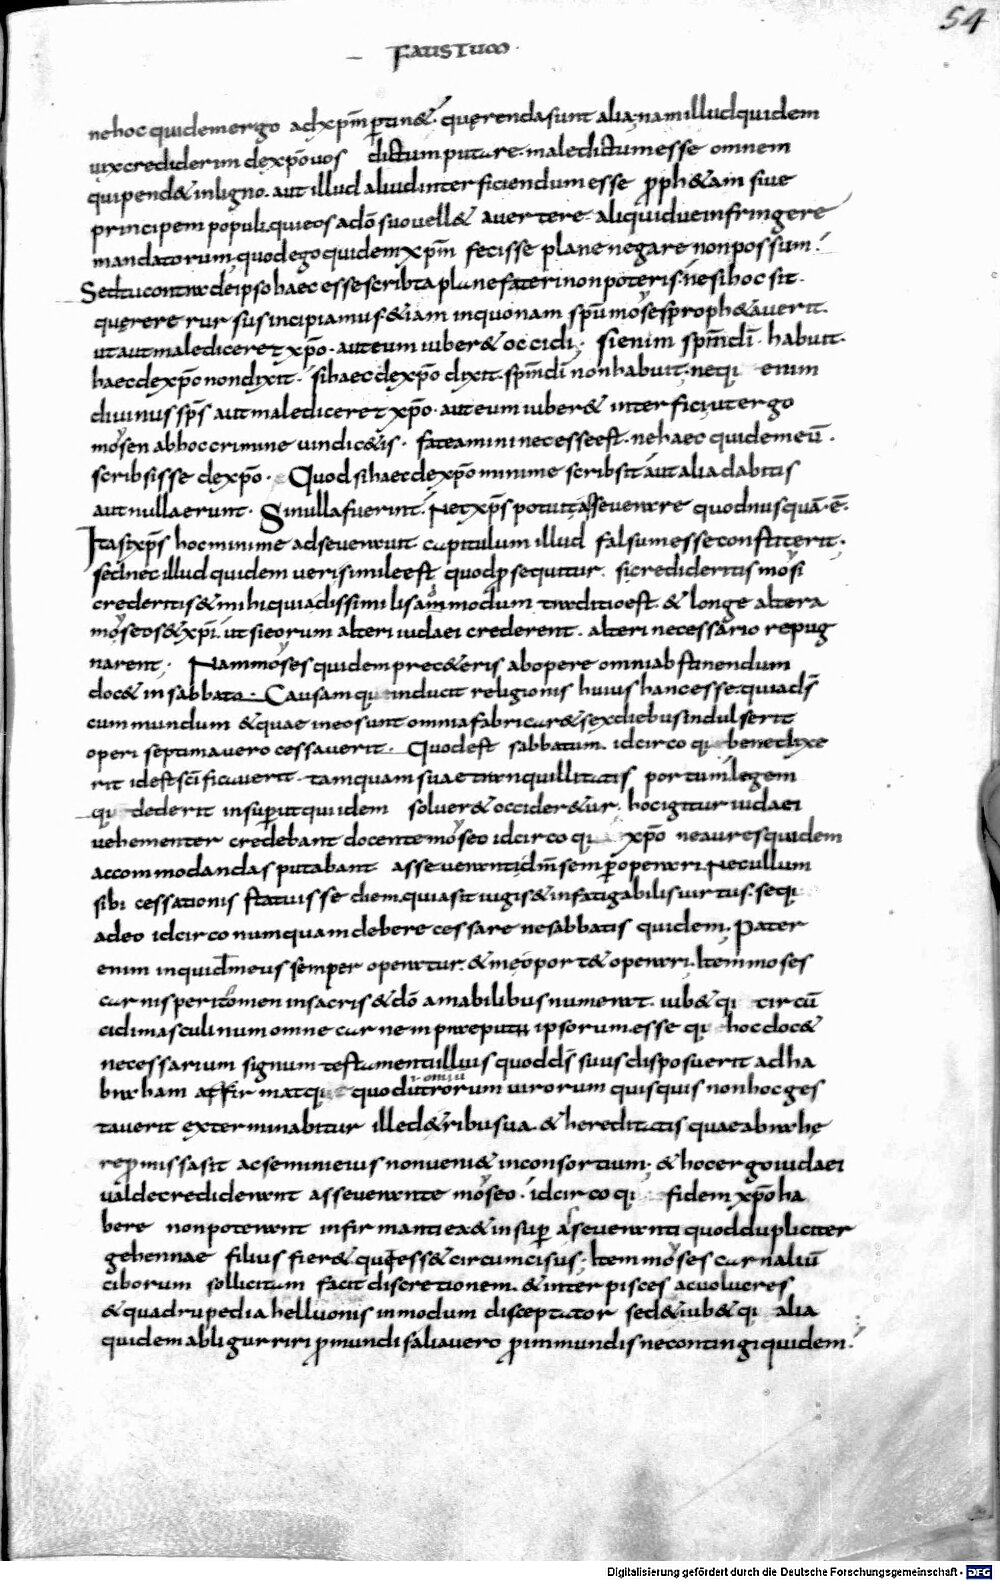 54
FAUSTUM
ne hoc quidem ergo ad xp̄m ꝑtin&. quęrenda sunt alia; nam illud quidem
uix crediderim de xp̄o uos dictum putare. maledictum esse omnem
qui pend& in ligno. aut illud aliud interficiendum esse ꝓph&am siue
principem populi. qui eos a dō suo uell& auertere. aliquid ue infringere
mandatorum. quod ego quidem xp̄m fecisse plane negare non possum.
Sed tu contra de ipso haec esse scribta plane fateri non poteris. ne si hoc sit.
quęrere rursus incipiamus & iam in quonam spū moyses proph&auerit.
ut aut malediceret xp̄o. aut eum iuber& occidi; si enim spm̄ dī habuit.
haec de xp̄o non dixit. si haec de xp̄o dixit. spm̄ dī non habuit. neq; enim
diuinus sps̄ aut malediceret xp̄o. aut eum iuber& interfici; ut ergo
moysen ab hoc crimine uindic&is. fateamini necesse est. ne haec quidem eū.
scribsisse de xp̄o. Quod si haec de xp̄o minime scribsit aut alia dabitis
aut nulla erunt. Si nulla fuerint. Nec xp̄s potuit asseuerare quod nusquā. ē.
Ita si xp̄s hoc minime adseuerauit. capitulum illud falsum esse constiterit.
sed nec illud quidem uerisimile est quod ꝓsequitur. si crederitis moysi
crederitis & mihi quia dissimilis ammodum traditio est. & longe altera
moyseos & xp̄i. ut si eorum alteri iudaei crederent. alteri necessario repug
narent; Nam moyses quidem prec&eris ab opere omni abstinendum
doc& in sabbato. Causam que inducit religionis huius hanc esse. quia ds̄
cum mundum & quae in eo sunt omnia fabricar& sex diebus indulserit
operi septima uero cessauerit. Quod est sabbatum. idcirco q; benedixe
rit id est scīficauerit. tamquam suae tranquillitatis portum. legem
q; dederit insuꝑ ut qui idem soluer& occider&ur. hoc igitur iudaei
uehementer credebant docente moyseo idcirco q; xp̄o ne aures quidem
accommodandas putabant asseueranti dm̄ semꝑ operari. Nec ullum
sibi cessationis statuisse diem. quia sit iugis & infatigabilis uirtus. seq;
adeo idcirco numquam debere cessare ne sabbatis quidem. Pater
enim inquid meus semper operatur. & me oport& operari. Item moses
carnis peritomen in sacris & dō amabilibus numerat. iub& q; circū
cidi masculinum omne carnem praeputii ipsorum. esse q; hoc doc&
necessarium signum testamenti illius quod ds̄ suus disposuerit ad ha
braham affirmat q; quod uirorum quisquis non hoc ges
tauerit exterminabitur ille de tribu sua. & hereditatis quae abrahę
repromissa sit ac semini eius non ueni& in consortium; & hoc ergo iudaei
ualde crediderant asseuerante moyseo. idcirco q; fidem xp̄o ha
bere non poterant infirmanti ea & insuꝑ asseueranti quod dupliciter
gehennae filius fier& qui ess& circumcisus; Item moyses carnaliū
ciborum sollicitam facit discretionem. & inter pisces ac uolucres
& quadrupedia helluonis in modum disceptator sed& iub& q; alia
quidem abligurriri ꝓ mundis alia uero ꝓ inmundis ne contingi quidem.
Digitalisierung gefördert durch die Deutsche Forschungsgemeinschaft - DFG